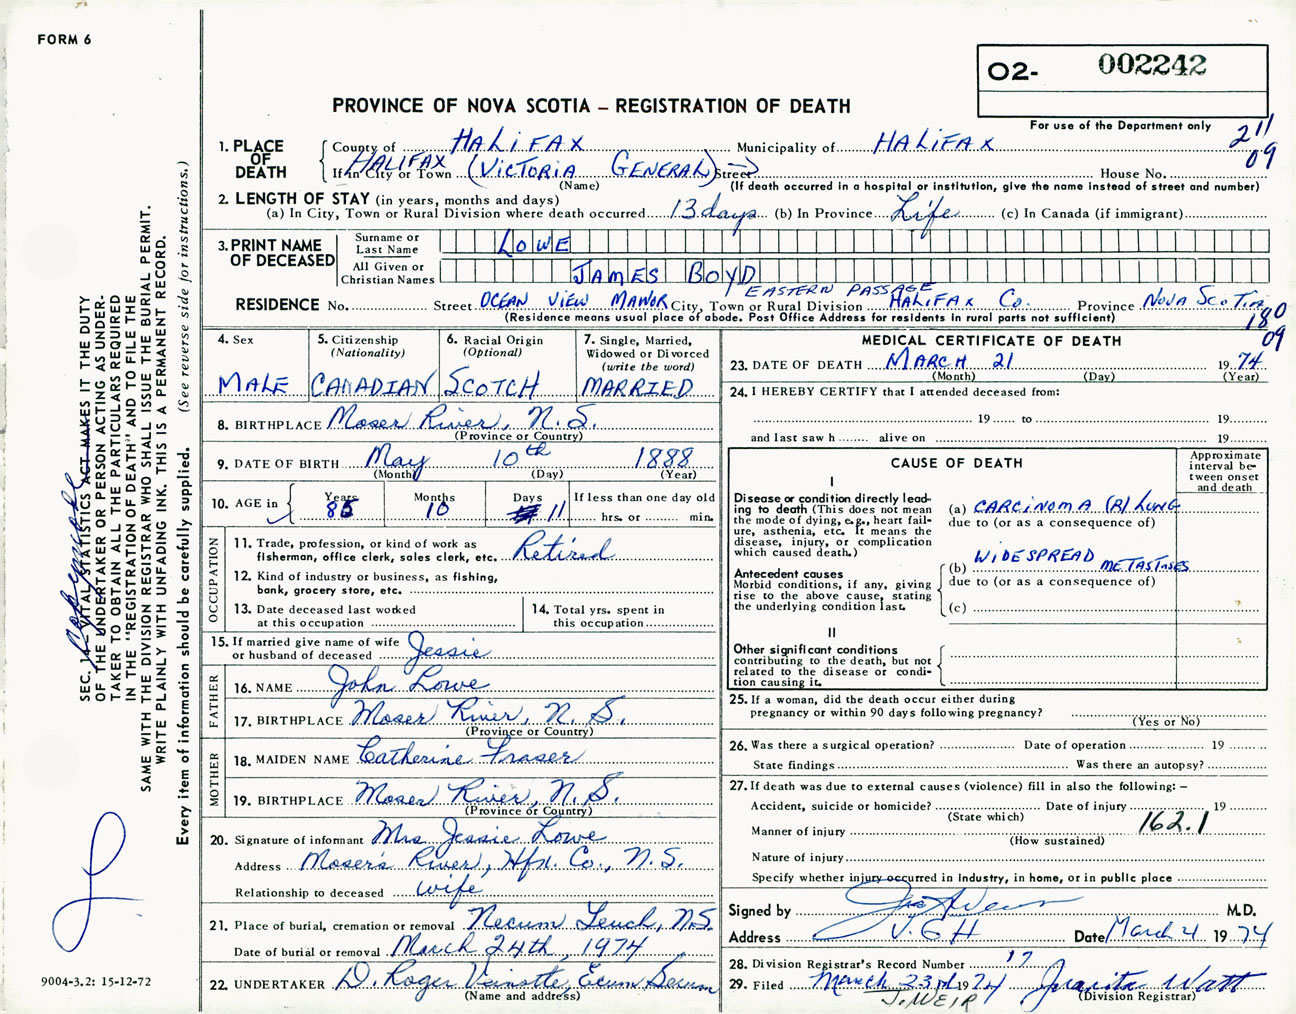 FORM 6
O2- 002242
PROVINCE OF NOVA SCOTIA – REGISTRATION OF DEATH
For use of the Department only
2 11
09
1. PLACE OF DEATH
County of HALIFAX Municipality of HALIFAX
If in City or Town HALIFAX (VICTORIA GENERAL) Street House No.
(Name) (If death occurred in a hospital or institution, give the name instead of street and number)
2. LENGTH OF STAY (in years, months and days)
(a) In City, Town or Rural Division where death occurred 13 days (b) In Province Life (c) In Canada (if immigrant)
3. PRINT NAME OF DECEASED
Surname or Last Name LOWE
All Given or Christian Names JAMES BOYD
EASTERN PASSAGE
RESIDENCE No. Street OCEAN VIEW MANOR City, Town or Rural Division HALIFAX Co. Province NOVA SCOTIA
(Residence means usual place of abode. Post Office Address for residents in rural parts not sufficient)
180
09
4. Sex MALE
5. Citizenship (Nationality) CANADIAN
6. Racial Origin (Optional) SCOTCH
7. Single, Married, Widowed or Divorced (write the word) MARRIED
8. BIRTHPLACE Moser River, N.S.
(Province or Country)
9. DATE OF BIRTH May 10th 1888
(Month) (Day) (Year)
10. AGE in Years 85 Months 10 Days 11 If less than one day old
hrs. or min.
OCCUPATION
11. Trade, profession, or kind of work as fisherman, office clerk, sales clerk, etc. Retired
12. Kind of industry or business, as fishing, bank, grocery store, etc.
13. Date deceased last worked at this occupation
14. Total yrs. spent in this occupation
15. If married give name of wife or husband of deceased Jessie
FATHER
16. NAME John Lowe
17. BIRTHPLACE Moser River, N.S.
(Province or Country)
MOTHER
18. MAIDEN NAME Catherine Fraser
19. BIRTHPLACE Moser River, N.S.
(Province or Country)
20. Signature of informant Mrs Jessie Lowe
Address Moser's River, Hfx. Co., N.S.
Relationship to deceased wife
21. Place of burial, cremation or removal Necum Teuch, N.S.
Date of burial or removal March 24th, 1974
22. UNDERTAKER D. Roger Ecum Secum
(Name and address)
MEDICAL CERTIFICATE OF DEATH
23. DATE OF DEATH MARCH 21 1974
(Month) (Day) (Year)
24. I HEREBY CERTIFY that I attended deceased from:
19 to 19
and last saw h alive on 19
CAUSE OF DEATH
Approximate interval between onset and death
I
Disease or condition directly leading to death (This does not mean the mode of dying, e.g., heart failure, asthenia, etc. It means the disease, injury, or complication which caused death.)
(a) CARCINOMA (R) LUNG
due to (or as a consequence of)
Antecedent causes
Morbid conditions, if any, giving rise to the above cause, stating the underlying condition last.
(b) WIDESPREAD METASTASES
due to (or as a consequence of)
(c)
II
Other significant conditions
contributing to the death, but not related to the disease or condition causing it.
25. If a woman, did the death occur either during pregnancy or within 90 days following pregnancy?
(Yes or No)
26. Was there a surgical operation? Date of operation 19
State findings Was there an autopsy?
27. If death was due to external causes (violence) fill in also the following: –
Accident, suicide or homicide? Date of injury 19
(State which)
162.1
Manner of injury
(How sustained)
Nature of injury
Specify whether injury occurred in industry, in home, or in public place
Signed by M.D.
Address V.G.H Date March 4 1974
28. Division Registrar's Record Number 17
29. Filed March 23rd 1974 Juanita Watt
(Division Registrar)
J. WEIR
SEC. 14 – VITAL STATISTICS ACT MAKES IT THE DUTY
OF THE UNDERTAKER OR PERSON ACTING AS UNDERTAKER
TO OBTAIN ALL THE PARTICULARS REQUIRED
IN THE "REGISTRATION OF DEATH" AND TO FILE THE
SAME WITH THE DIVISION REGISTRAR WHO SHALL ISSUE THE BURIAL PERMIT.
WRITE PLAINLY WITH UNFADING INK. THIS IS A PERMANENT RECORD.
Every item of information should be carefully supplied. (See reverse side for instructions.)
9004-3.2: 15-12-72